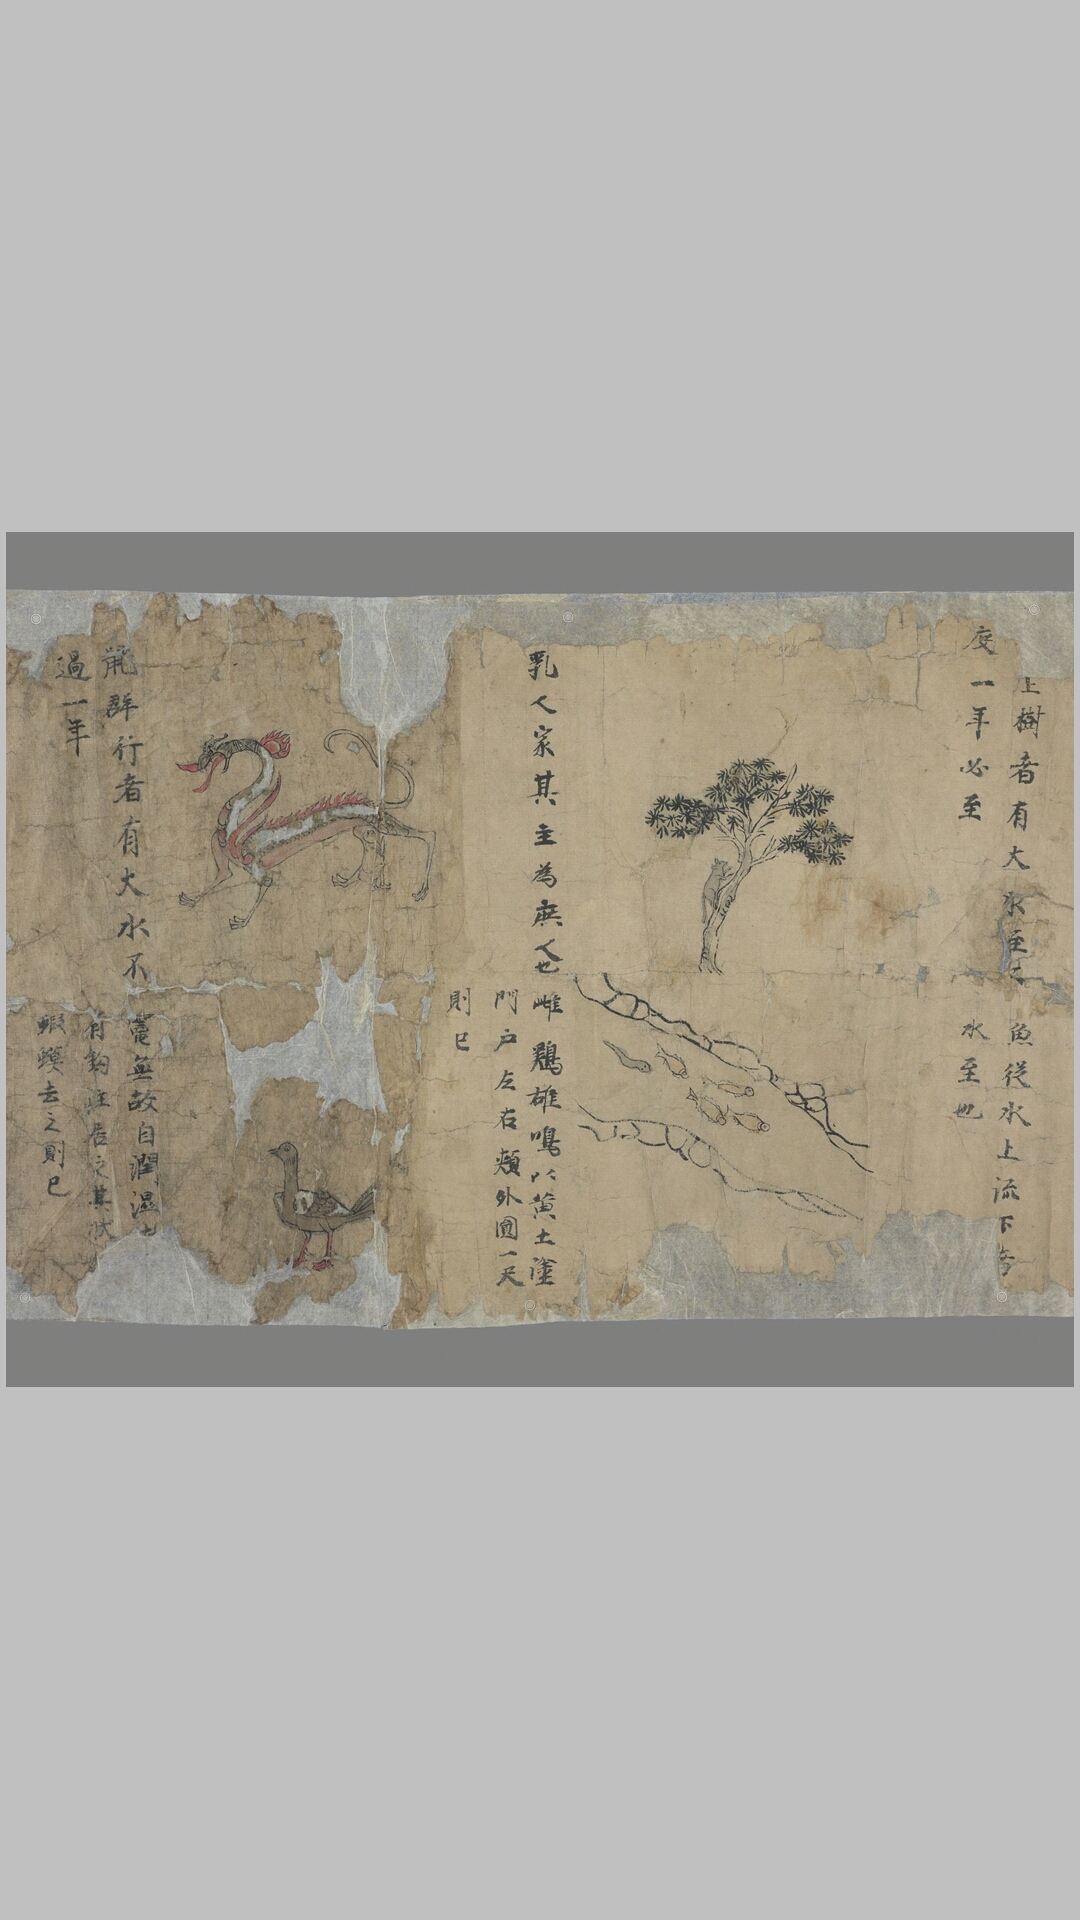 上樹者有大水至之
度一年必至
魚從水上流下者
水至也
乳人家其主為庶人也
雌鷄雄鳴以黄土塗
門戶左右頰外圓一尺
則已
群行者有大水不
過一年
竈無故自潤濕
有鈎居之其狀
蝦蟆去之則已